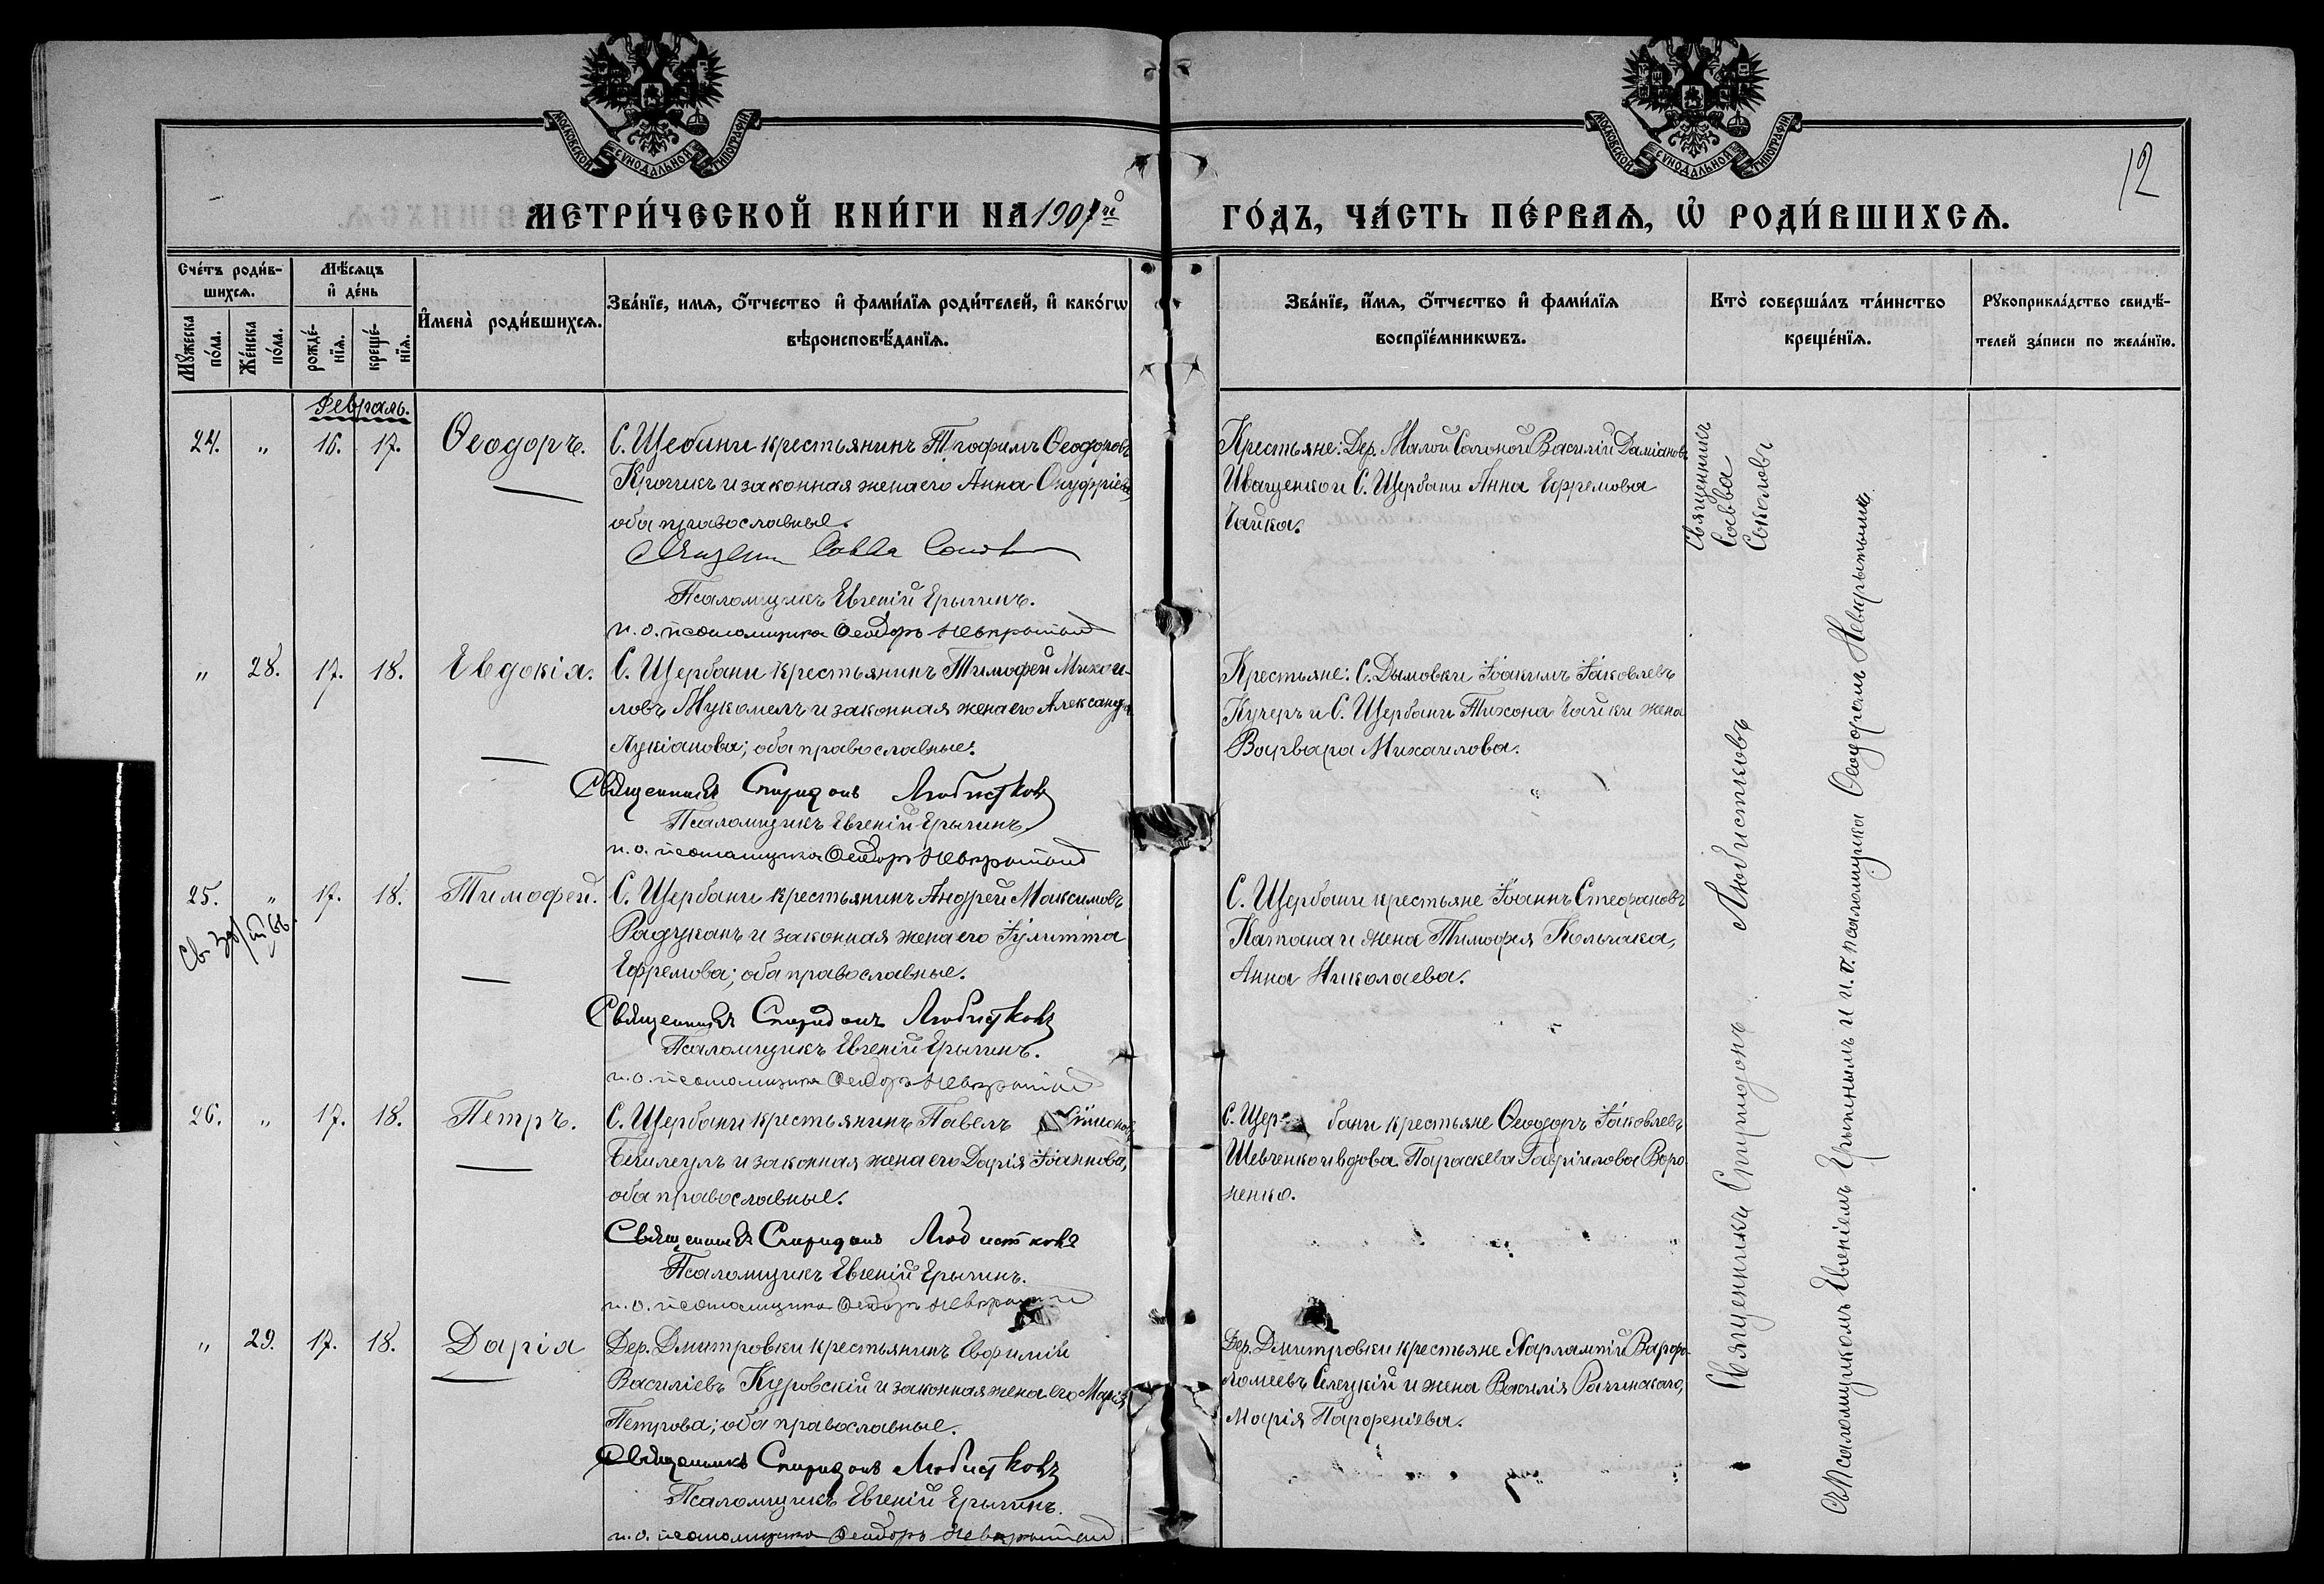 МОСКОВСКОЙ СѴНОДАЛЬНОЙ ТИПОГРАФІИ
МОСКОВСКОЙ СѴНОДАЛЬНОЙ ТИПОГРАФІИ
12
МЕТРИ́ЧЕСКОЙ КНИ́ГИ НА 1907й ГО́ДЪ, ЧА́СТЬ ПЕ́РВАѦ, Ѡ҆ РОДИ́ВШИХСѦ.
Сче́тъ роди́в-
шихсѧ.
Мꙋ́жеска по́ла.
Же́нска по́ла.
Мѣ́сѧцъ
и҆ де́нь
рожде́-
нїѧ.
креще́-
нїѧ.
И҆мена̀ роди́вшихсѧ.
Зва́нїе, имѧ, ѻ҆́тчество и҆ фами́лїѧ роди́телей, и҆ како́гѡ
вѣроисповѣ́данїѧ.
Зва́нїе, и҆́мѧ, ѻ҆́тчество и҆ фами́лїѧ
воспрїе́мникѡвъ.
Кто̀ соверша́лъ та́инство
креще́нїѧ.
Рꙋкоприкла́дство свидѣ́-
телей за́писи по жела́нїю.
Февраль.
24. " 16. 17. Ѳеодоръ.
С. Щебани крестьянинъ Трофимъ Ѳеодоровъ
и законная жена его Анна Онуфріева
оба православные.
Савва
Псаломщикъ Евгеній Ерыгинъ.
и.о. псаломщика Ѳеодоръ Невкрытый
Крестьяне: Дер. Малой Солоной Василій Даміановъ
Иващенко и С. Щербани Анна Ефремова
Чайка.
Священникъ
Савва
Соколовъ
" 28. 17. 18. Евдокія.
С. Щербани крестьянинъ Тимофей Михаи-
ловъ Мукомелъ и законная жена его Александра
Лукіанова; оба православные.
Священникъ Спиридонъ Любистковъ
Псаломщикъ Евгеній Ерыгинъ.
и.о. псаломщика Ѳеодоръ Невкрытый
Крестьяне: С. Дымовки Іоакимъ Іаковлевъ
Кучеръ и С. Щербани Тихона Чайки жена
Варвара Михаилова.
25. " 17. 18. Тимофей.
С. Щербани крестьянинъ Андрей Максимовъ
Радуканъ и законная жена его Іулитта
Ефремова; оба православные.
Священникъ Спиридонъ Любистковъ
Псаломщикъ Евгеній Ерыгинъ.
и.о. псаломщика Ѳеодоръ Невкрытый
С. Щербани крестьяне Іоаннъ Стефановъ
Капана и жена Тимофея Колчака,
Анна Николаева.
26. " 17. 18. Петръ.
С. Щербани крестьянинъ Павелъ Сѵмеоновъ
и законная жена его Дарія Іоаннова,
оба православные.
Священникъ Спиридонъ Любистковъ
Псаломщикъ Евгеній Ерыгинъ.
и.о. псаломщика Ѳеодоръ Невкрытый
С. Щербани крестьяне Ѳеодоръ Іаковлевъ
Шевченко и вдова Параскева Гавріилова Воро-
ненко.
" 29. 17. 18. Дарія
Дер. Дмитровки крестьянинъ Евфимій
Василіевъ Куровскій и законная жена его Марія
Петрова; оба православные.
Священникъ Спиридонъ Любистковъ
Псаломщикъ Евгеній Ерыгинъ.
и.о. псаломщика Ѳеодоръ Невкрытый
Дер. Дмитровки крестьяне Харлампій Варфо-
ломеевъ Селецкій и жена Василія Рачинскаго,
Марія Парфеніева.
Священникъ Спиридонъ Любистковъ
съ Псаломщикомъ Евгеніемъ Ерыгинымъ и и.о. псаломщика Ѳеодоромъ Невкрытымъ